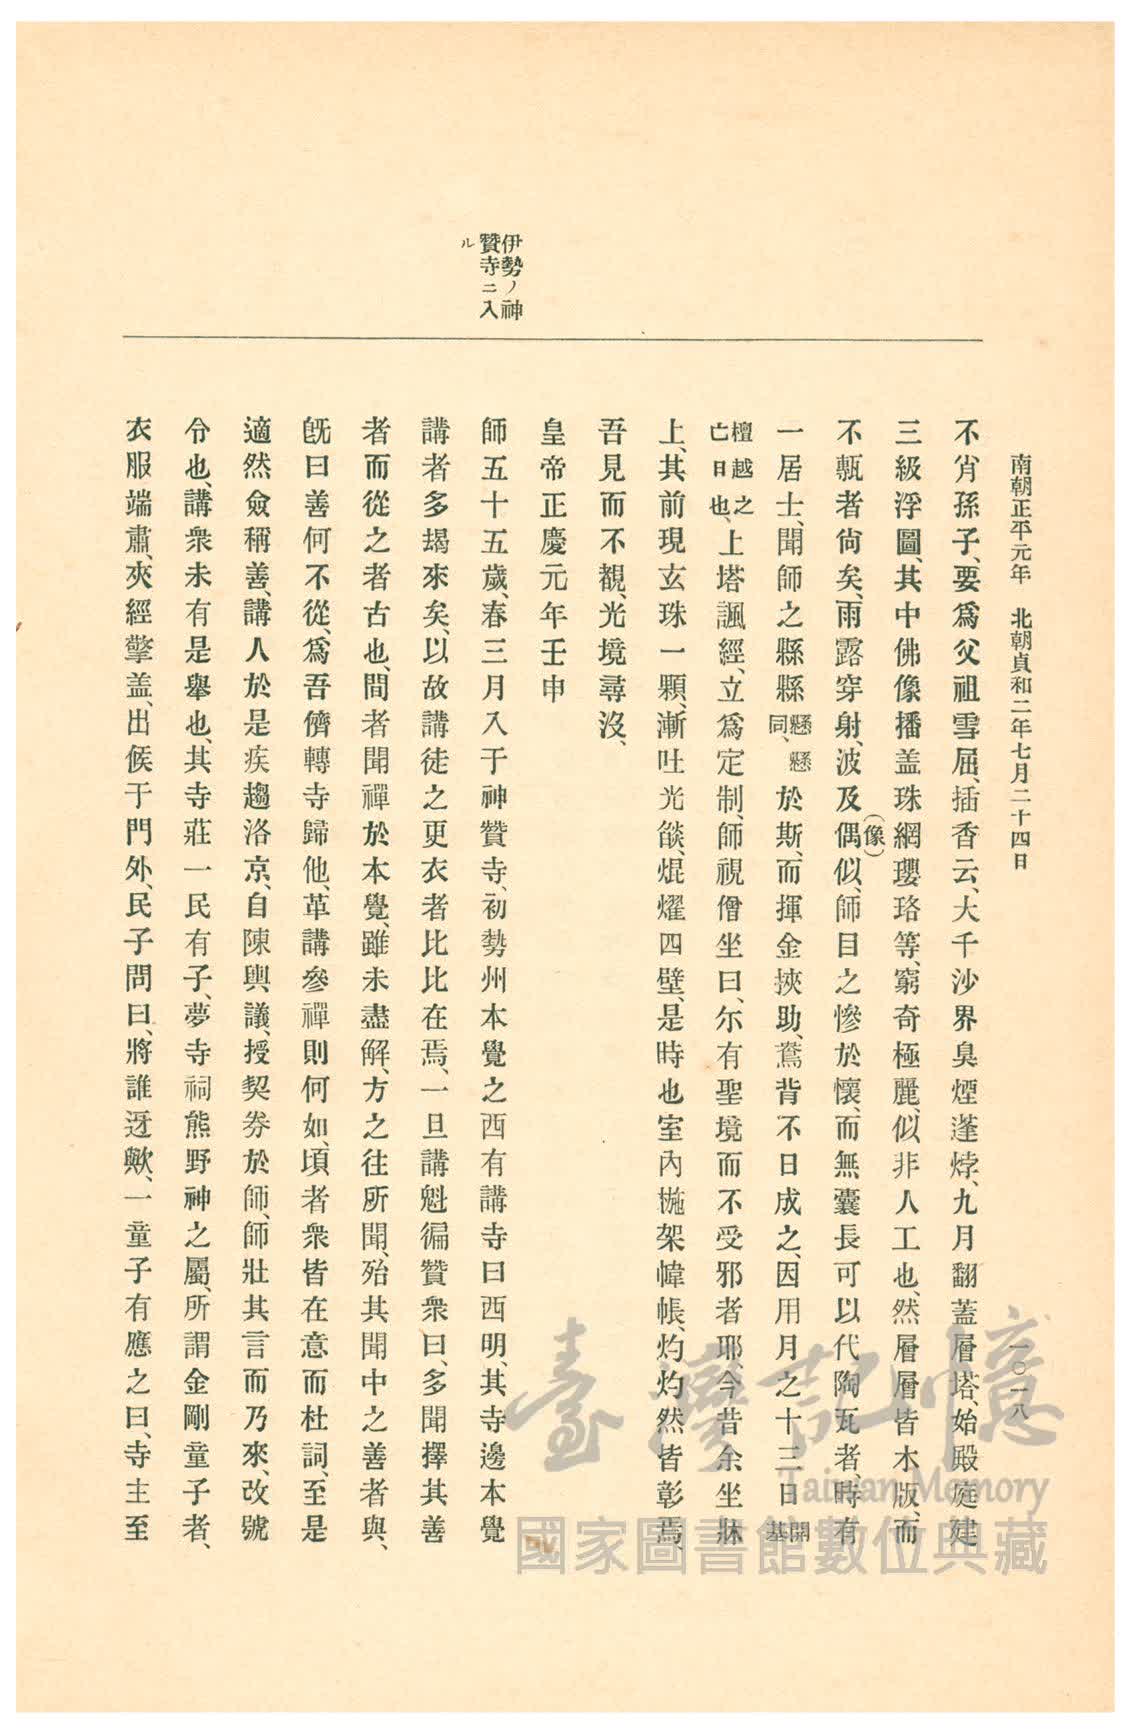 南朝正平元年　北朝貞和二年七月二十四日
一〇一八
伊勢ノ神
贊寺ニ入
ル
不肯孫子、要爲父祖雪屈、插香云、大千沙界臭煙蓬㶿、九月翻蓋層塔、始殿庭建
三級浮圖、其中佛像播盖珠網瓔珞等、窮奇極麗、似非人工也、然層層皆木版、而
不瓾者尙矣、雨露穿射、波及偶(像)似、師目之慘於懷、而無囊長可以代陶瓦者、時有
一居士、聞師之縣縣懸懸同、於斯、而揮金挾助、鴦背不日成之、因用月之十三日開基
檀越之亡日也、上塔諷經、立爲定制、師視僧坐曰、尓有聖境而不受邪者耶、今昔余坐牀
上、其前現玄珠一顆、漸吐光燄、焜燿四壁、是時也室內椸架幃帳、灼灼然皆彰焉、
吾見而不覩、光境尋沒、
皇帝正慶元年壬申
師五十五歲、春三月入于神贊寺、初勢州本覺之西有講寺曰西明、其寺邊本覺
講者多朅來矣、以故講徒之更衣者比比在焉、一旦講魁徧贊衆曰、多聞擇其善
者而從之者古也、間者聞禪於本覺、雖未盡解、方之往所聞、殆其聞中之善者與、
旣曰善何不從、爲吾儕轉寺歸他、革講參禪則何如、頃者衆皆在意而杜詞、至是
適然僉稱善、講人於是疾趨洛京、自陳輿議、授契券於師、師壯其言而乃來、改號
令也、講衆未有是擧也、其寺莊一民有子、夢寺祠熊野神之屬、所謂金剛童子者、
衣服端肅、夾經擎盖、出候于門外、民子問曰、將誰迓歟、一童子有應之曰、寺主至
臺灣記憶
Taiwan Memory
國家圖書館數位典藏